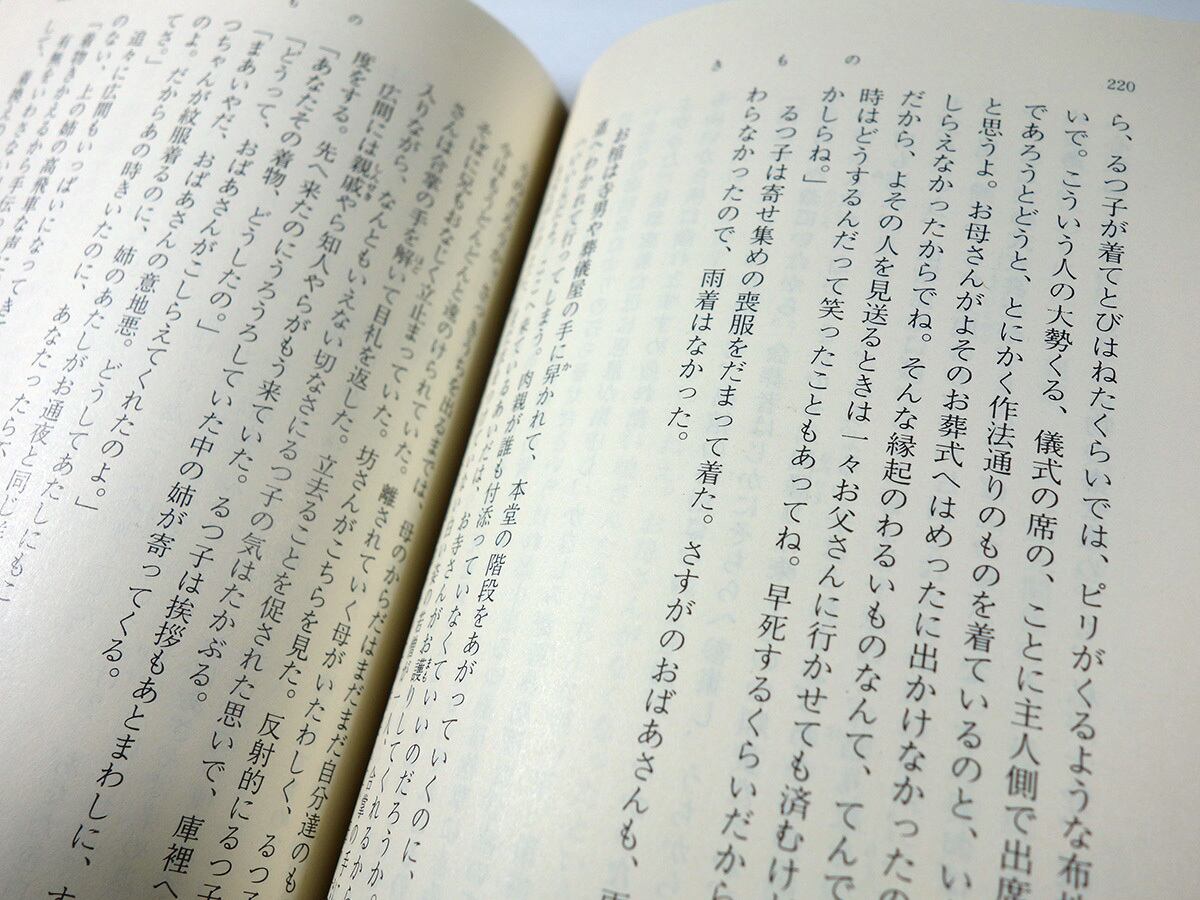 220
きもの
ら、るつ子が着てとびはねたくらいでは、ピリがくるような布地
いで。こういう人の大勢くる、儀式の席の、ことに主人側で出席
であろうとどうと、とにかく作法通りのものを着ているのと、い
と思うよ。お母さんがよそのお葬式へはめったに出かけなかったの
しらえなかったからでね。そんな縁起のわるいものなんて、てんで
だから、よその人を見送るときは一々お父さんに行かせても済むけ
時はどうするんだって笑ったこともあってね。早死するくらいだから
かしらね。」
るつ子は寄せ集めの喪服をだまって着た。さすがのおばあさんも、雨
わらなかったので、雨着はなかった。
お棺は寺男や葬儀屋の手に舁かれて、本堂の階段をあがっていくのに、
へわかれて行ってしまう。肉親が誰も付添っていなくていいのだろうか。
ここへ来ているあいだは、お寺さんがお護りしてくれるから
そばに兄もおなじく立止まっていた。離されていく母がいたわしく、るつ子
さんは合掌の手を解いて目礼を返した。坊さんがこちらを見た。反射的にるつ子
入りながら、なんともいえない切なさにるつ子の気はたかぶる。
広間には親戚やら知人やらがもう来ていた。るつ子は挨拶もあとまわしに、
度をする。先へ来たのにうろうろしていた中の姉が寄ってくる。
「あなたその着物、どうしたの。」
「どうって、おばあさんがこしらえてくれたのよ。」
「まあいやだ、おばあさんの意地悪。どうしてあたしにもこ
っちゃんが紋服着るのに、姉のあたしがお通夜と同じ
のよ。だからあの時きいたのに、あなたったら
てさ。」
追々に広間もいっぱいになってきて
のない、上の姉の高飛車な声に
「着物きかえるから手伝
有無をいわさない
して、着換えの